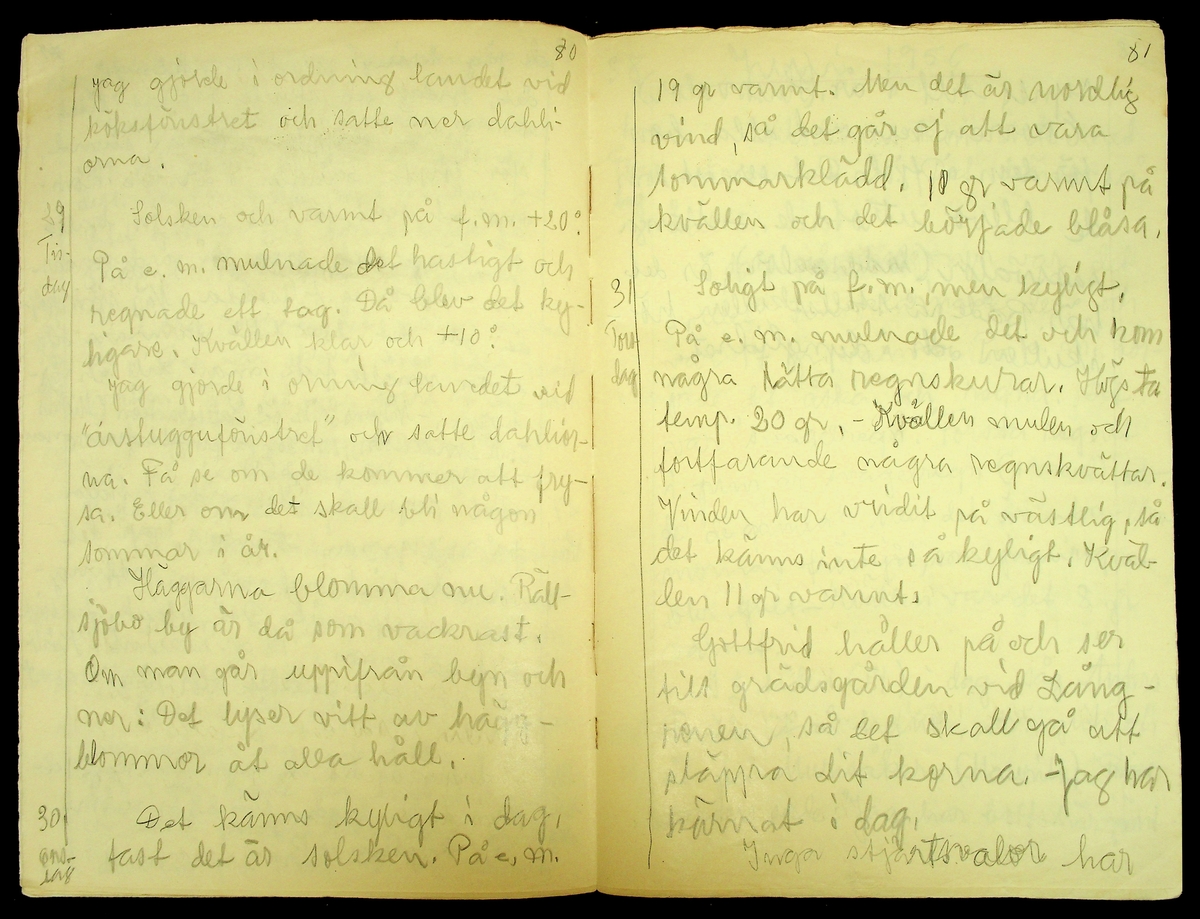 80
jag gjorde i ordning landet vid
köksfönstret och satte ner dahli-
orna.
29 Tis-dag
Solsken och varmt på f.m. +20°.
På e.m. mulnade det hastigt och
regnade ett tag. Då blev det ky-
ligare. Kvällen klar och +10°.
Jag gjorde i orning landet vid
"årstuggufönstret" och satte dahlior-
na. Få se om de kommer att fry-
sa. Eller om det skall bli någon
sommar i år.
Häggarna blomma nu. Rätt-
sjöbo by är då som vackrast.
Om man går uppifrån byn och
ner: Det lyser vitt av hägg-
blommor åt alla håll.
30 ons-dag
Det känns kyligt i dag,
fast det är solsken. På e.m.
81
19 gr varmt. Men det är nordlig
vind, så det går ej att vara
sommarklädd. 10 gr varmt på
kvällen och det började blåsa.
31 Tors-dag
Soligt på f.m., men kyligt.
På e.m. mulnade det och kom
några lätta regnskurar. Högsta
temp. 20 gr, - Kvällen mulen och
fortfarande några regnskvättar.
Vinden har vridit på västlig, så
det känns inte så kyligt. Kväl-
len 11 gr varmt.
Gottfrid håller på och ser
till grädsgården vid Lång-
renen, så det skall gå att
släppa dit korna. -Jag har
kärnat i dag.
Inga stjärtsvalor har